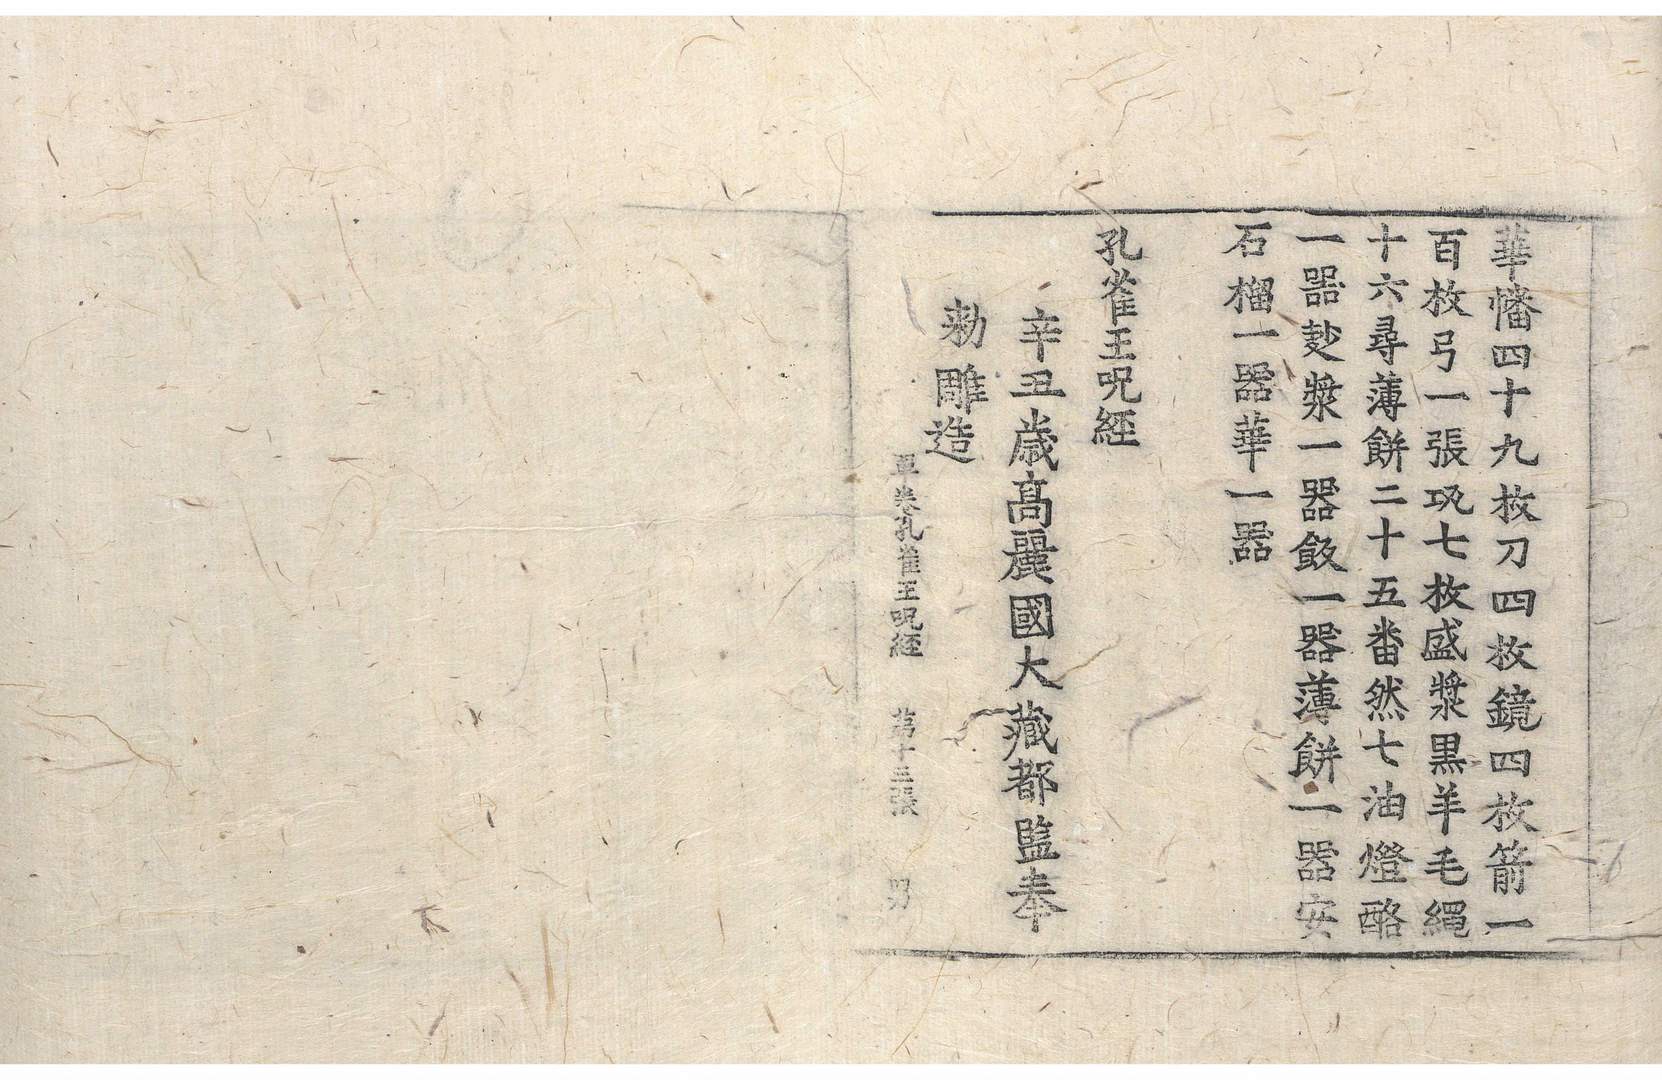 華幡四十九枚刀四枚鏡四枚箭一
百枚弓一張㺬七枚盛漿黒羊毛縄
十六尋薄餅二十五番然七油燈酪
一器麨漿一器飯一器薄餅一器安
石榴一器華一器
孔雀王呪經
辛丑歳高麗國大藏都監奉
勅雕造
單卷孔雀王呪經　苐十三張